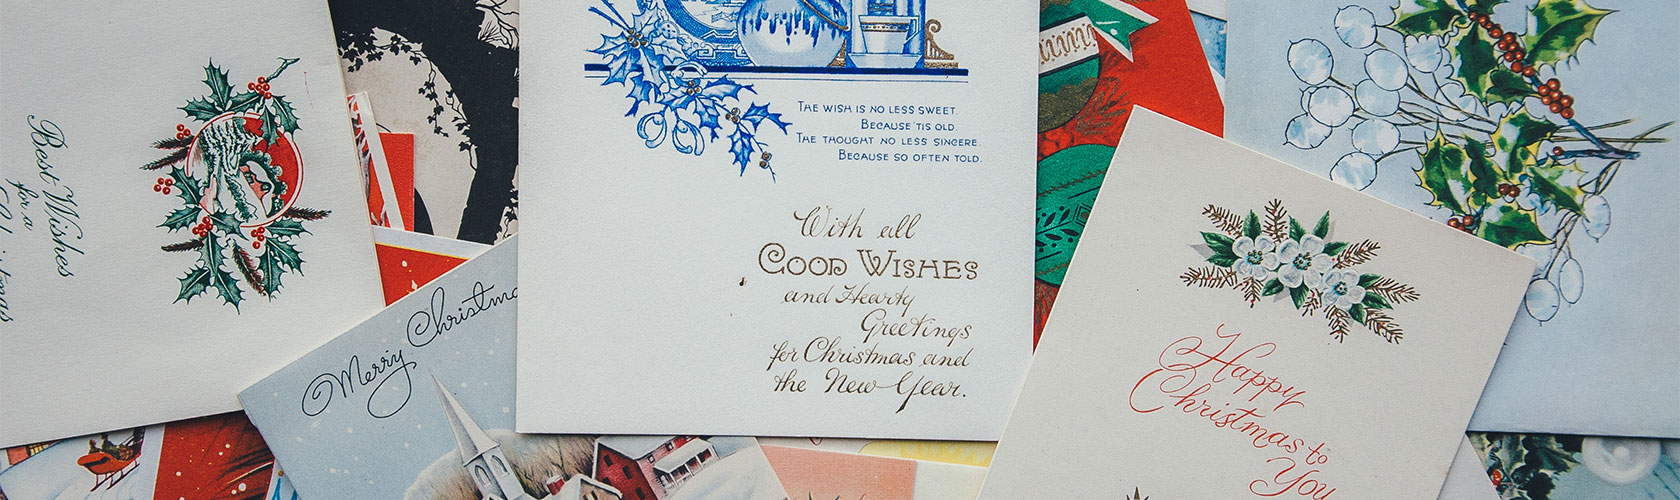 Best Wishes
for a
Christmas
Merry Christma
THE WISH IS NO LESS SWEET.
BECAUSE 'TIS OLD.
THE THOUGHT NO LESS SINCERE.
BECAUSE SO OFTEN TOLD.
With all
GOOD WISHES
and Hearty
Greetings
for Christmas and
the New Year.
Happy
Christmas to
You